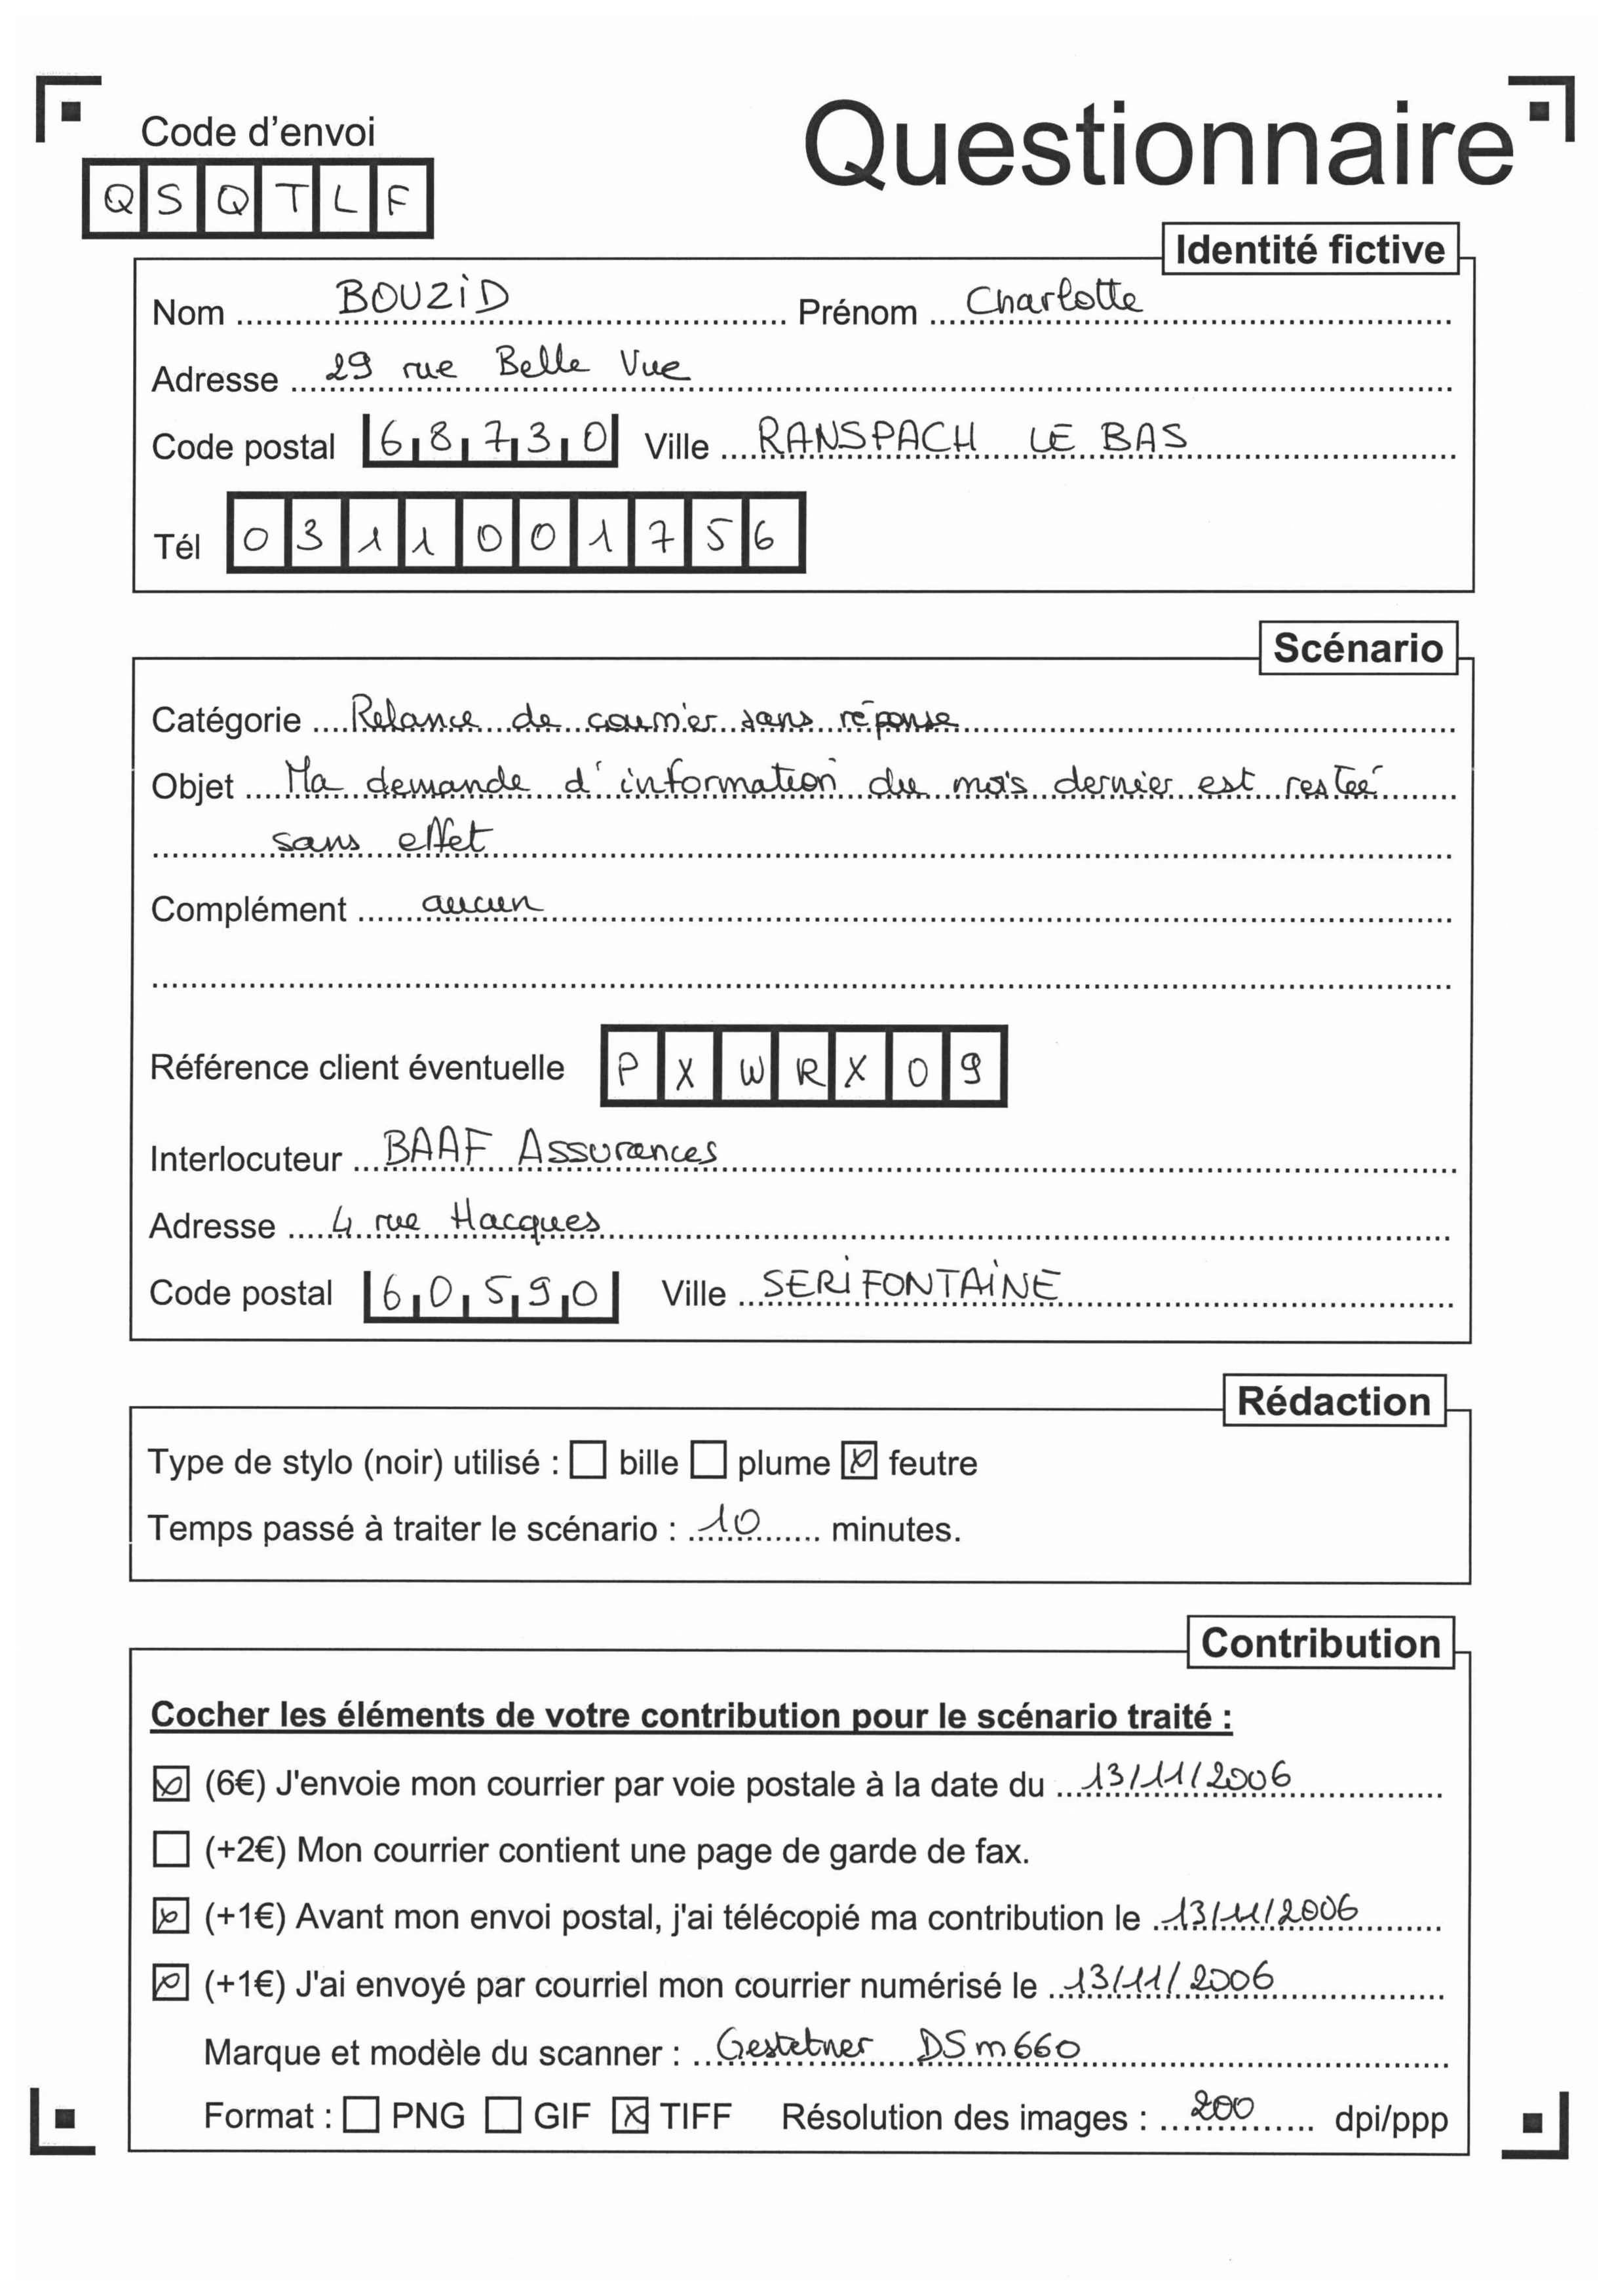 Code d'envoi
Questionnaire
QSQTLF
Identité fictive
Nom BOUZiD Prénom Charlotte
Adresse 29 rue Belle Vue
Code postal 68730 Ville RANSPACH LE BAS
Tél 0311001756
Scénario
Catégorie Relance de courrier sans réponse
Objet Ma demande d'information du mois dernier est restée
sans effet
Complément aucun
Référence client éventuelle PXWRX09
Interlocuteur BAAF Assurances
Adresse 4 rue Hacques
Code postal 60590 Ville SERiFONTAiNE
Rédaction
Type de stylo (noir) utilisé : bille plume feutre
Temps passé à traiter le scénario : 10 minutes.
Contribution
Cocher les éléments de votre contribution pour le scénario traité :
(6€) J'envoie mon courrier par voie postale à la date du 13/11/2006
(+2€) Mon courrier contient une page de garde de fax.
(+1€) Avant mon envoi postal, j'ai télécopié ma contribution le 13/11/2006
(+1€) J'ai envoyé par courriel mon courrier numérisé le 13/11/2006
Marque et modèle du scanner : Gestetner DSm660
Format : PNG GIF TIFF Résolution des images : 200 dpi/ppp